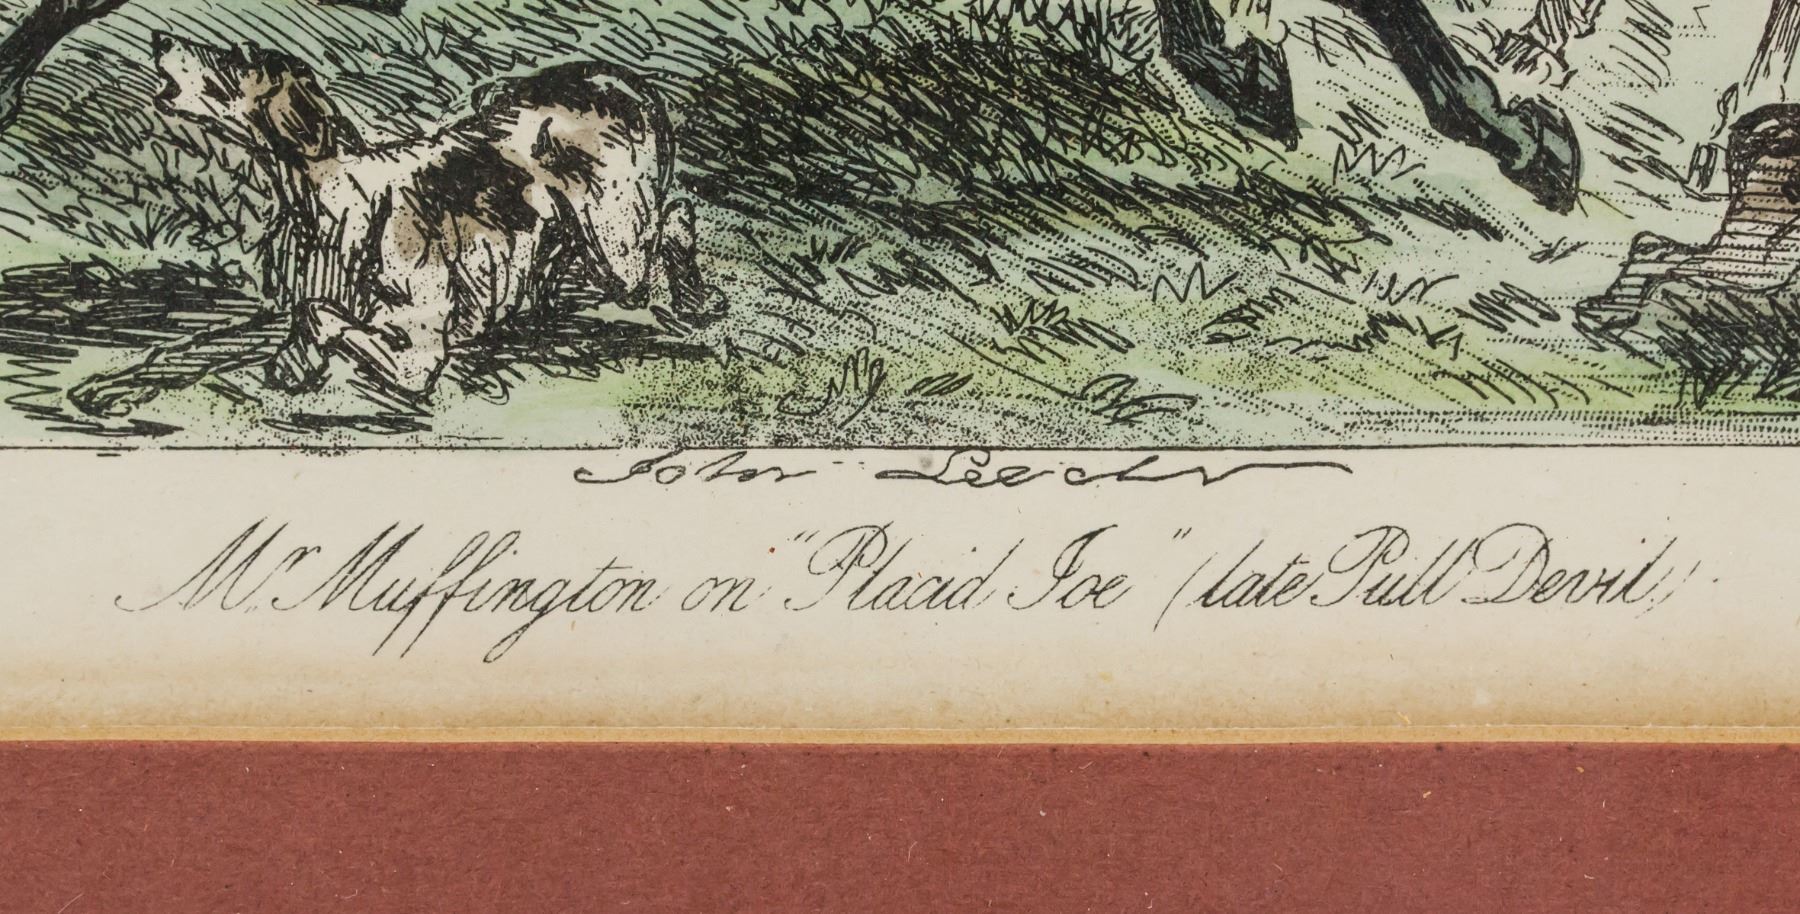 John Leech
Mr. Muffington on "Placid Joe" (late Pull Devil)